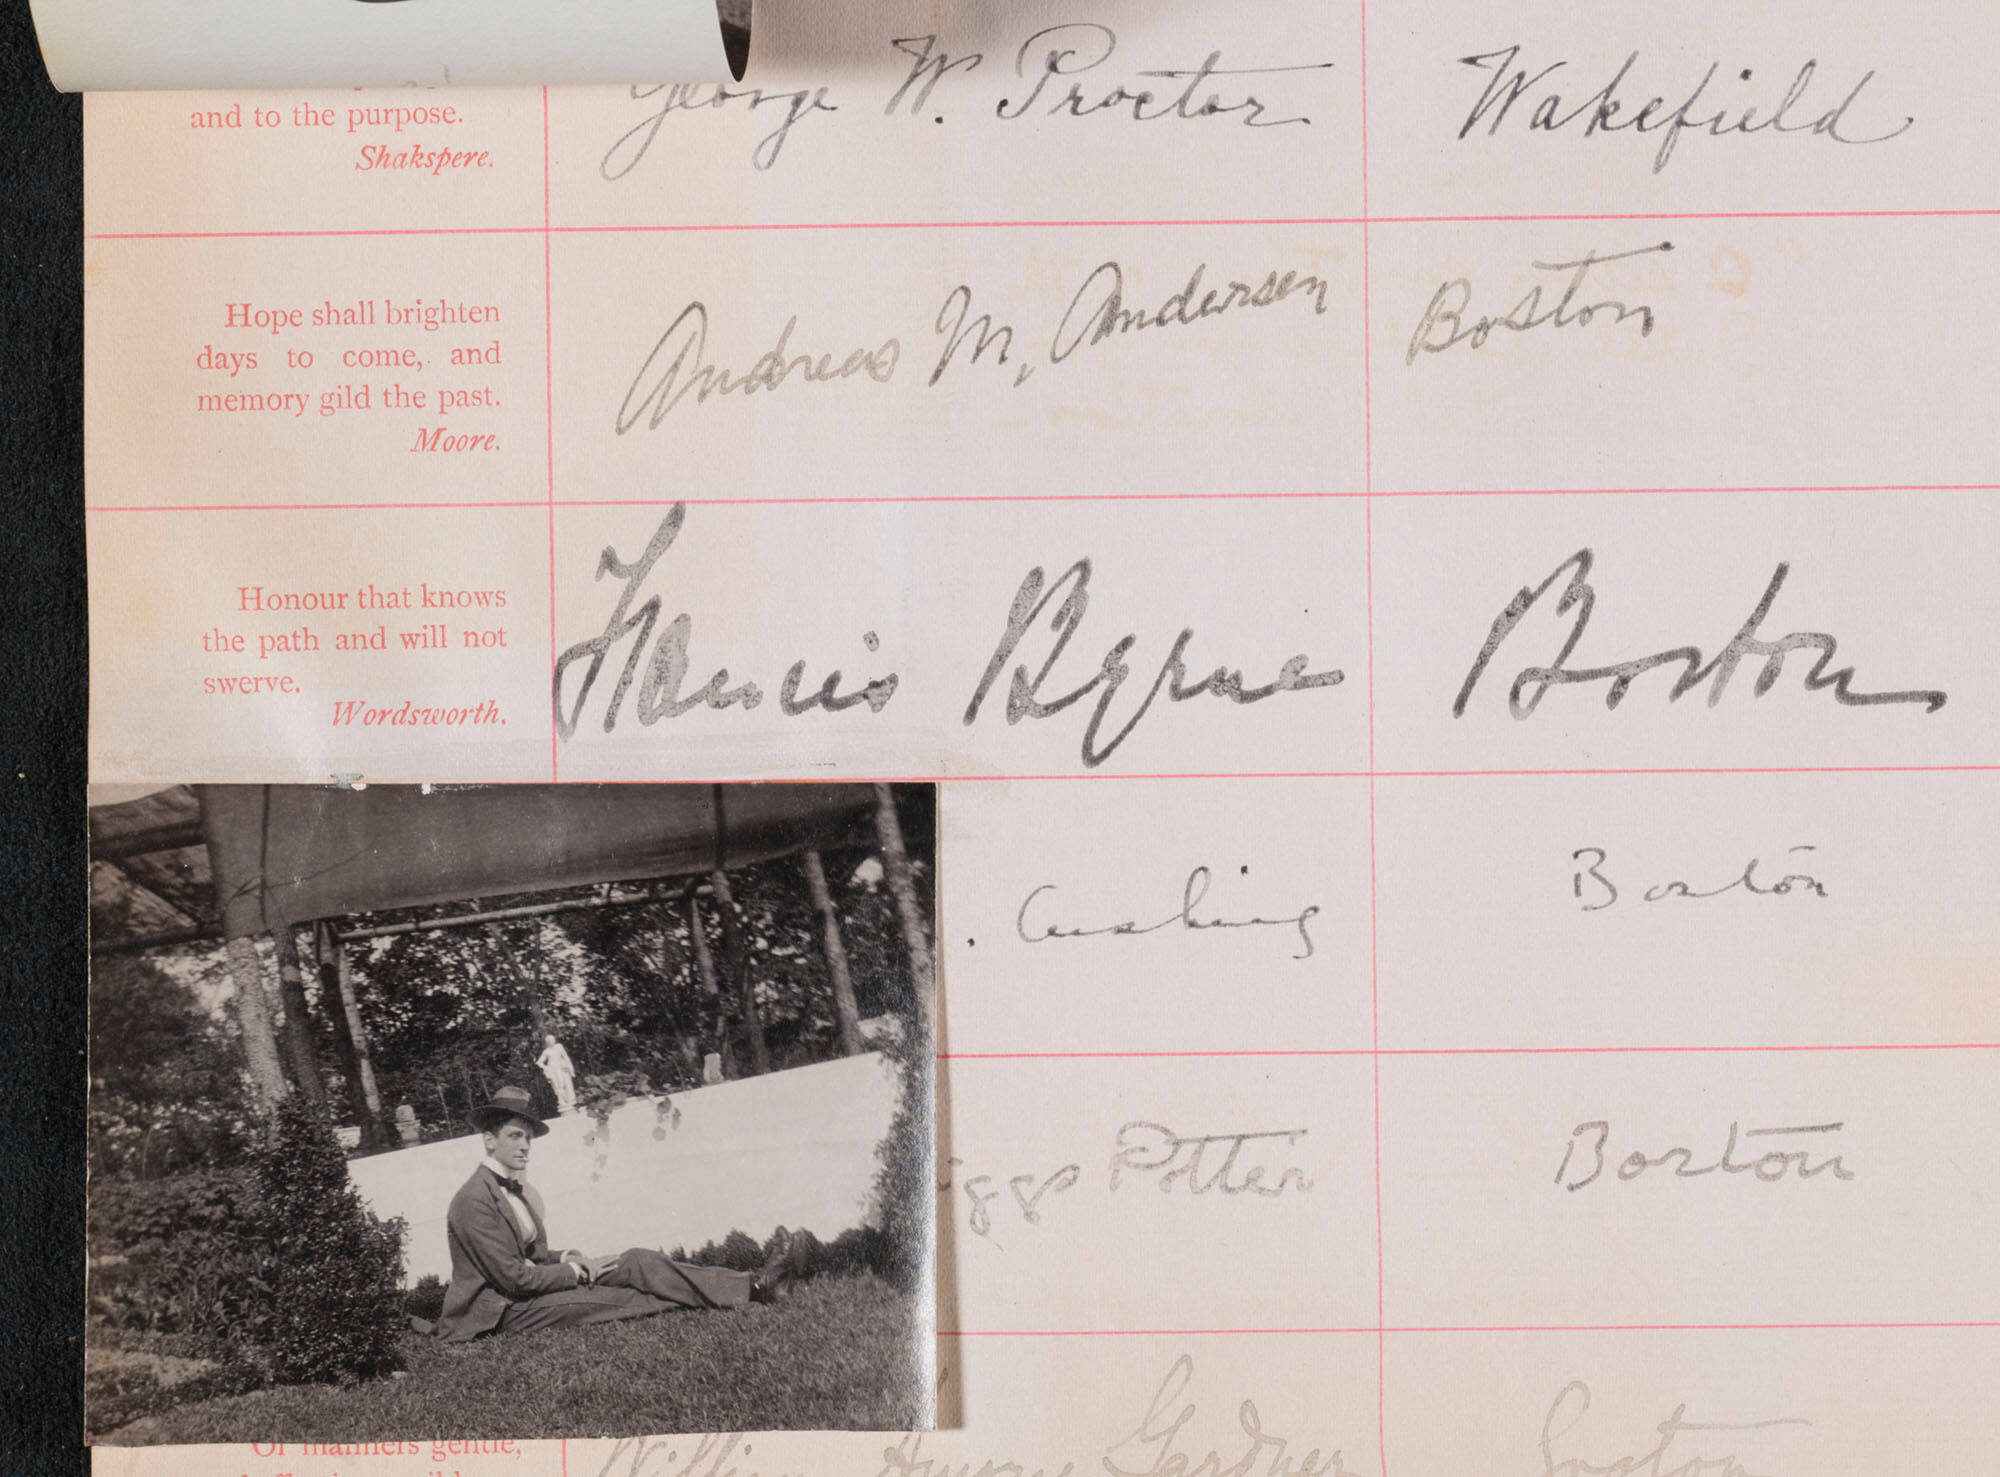 and to the purpose.
Shakspere.
George W. Proctor Wakefield
Hope shall brighten
days to come, and
memory gild the past.
Moore.
Andreas M. Andersen Boston
Honour that knows
the path and will not
swerve.
Wordsworth.
Francis Byrne Boston
. Cushing Boston
iggs Potter Boston
Of manners gentle,
William Amory Gardner Groton